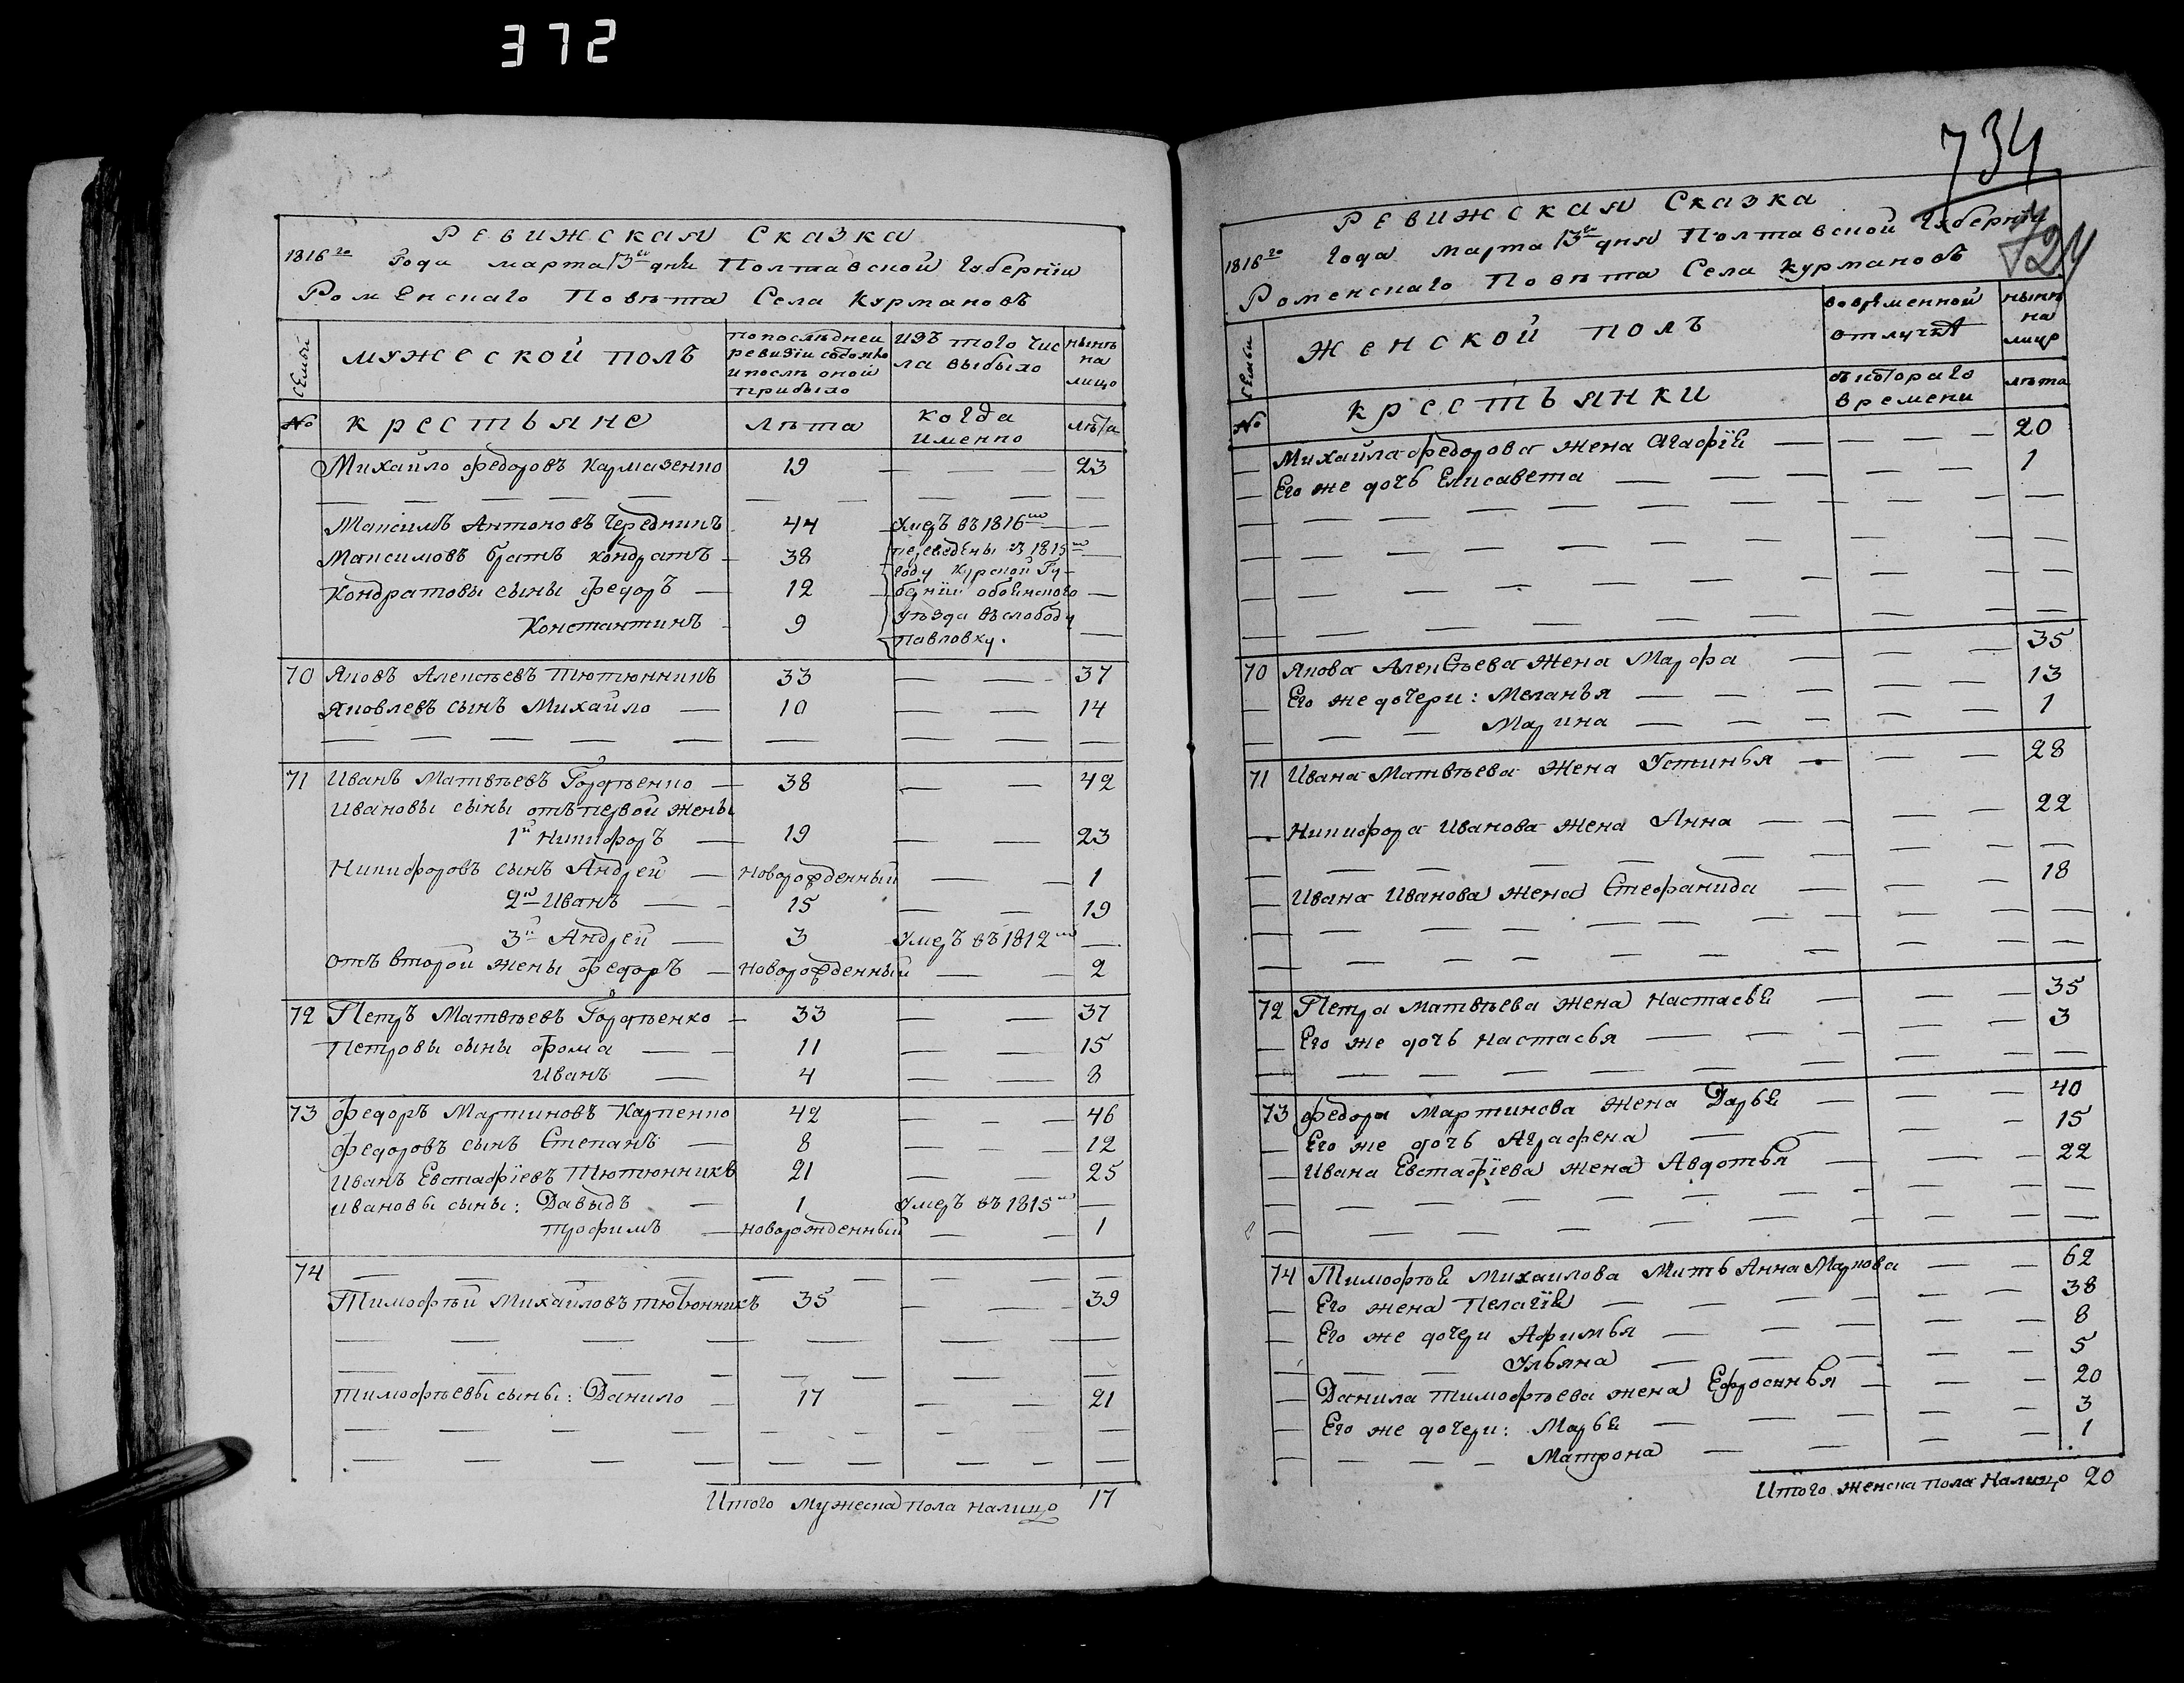 372
Ревижская Сказка
1816го Года марта 13го дня Полтавской Губернїи
Роменскаго Повѣта Села Курмановъ
Семьи
мужеской полъ
по последней ревизїи состояло и после оной прибыло
изъ того числа выбыло
нынѣ на лицо
№
крестьяне
лѣта
когда именно
лѣта
Михайло Федоровъ Кармазенко 19 — — — 23
— — — — — — — — — —
Максимъ Антоновъ Чередникъ 44 умеръ въ 1816мъ —
Максимовъ братъ Кондратъ — 38 переведены въ 1815мъ —
году Курской Гу-
Кондратовы сыны Федоръ — 12 бернїи обоянского —
уѣзда въ слободу
Константинъ 9 Павловку. —
70 Яковъ Алексѣевъ Тютюнникъ 33 — — — 37
Яковлевъ сынъ Михайло — 10 — — 14
— — — — — — — — —
71 Иванъ Матвѣевъ Гордѣенко — 38 — — 42
Ивановы сыны отъ первой жены
1й Никифоръ — 19 — — 23
Никифоровъ сынъ Андрей — новорожденный — — 1
2й Иванъ — — 15 — — 19
3й Андрей — 3 умеръ въ 1812мъ —
отъ второй жены Федоръ — новорожденный — — 2
72 Петръ Матвѣевъ Гордѣенко — 33 — — 37
Петровы сыны Фома — — 11 — — 15
Иванъ — 4 — — 8
73 Федоръ Мартиновъ Карпенко 42 — — — 46
Федоровъ сынъ Степанъ — 8 — — — 12
Иванъ Евстафїевъ Тютюнникъ 21 — — 25
Ивановы сыны: Давыдъ — 1 умеръ въ 1815мъ —
Трофимъ — новорожденный — — 1
74 — — — — — — — — —
Тимофѣй Михайловъ тютюнникъ 35 — — — 39
— — — — — — —
— — — — — — — — —
Тимофѣевы сыны: Данило — 17 — — 21
— — — — — — — — — —
— — — — — — — — — —
Итого мужеска пола налицо 17
734
724
Ревижская Сказка
1816го Года марта 13го дня Полтавской Губернїи
Роменскаго Повѣта Села Курмановъ
Семьи
женской полъ
во временной отлучкѣ
нынѣ на лицо
№
крестьянки
съ котораго времени
лѣта
— Михайла Федорова жена Агафїя — — — — 20
— Его же дочь Елисавета — — — — — 1
— — — — — — — — — —
— — — — — — — — — —
— — — — — — — — — —
— — — — — — — — — —
70 Якова Алексѣева жена Марфа — — — 35
— Его же дочери: Меланья — — — — — 13
— — — Марина — — — — — 1
71 Ивана Матвѣева жена Устинья — — — 28
— Никифора Иванова жена Анна — — — — 22
— — — — — — — — — —
— Ивана Иванова жена Стефанида — — — 18
— — — — — — — — — —
— — — — — — — — — —
72 Петра Матвѣева жена настасья — — — 35
— Его же дочь настасья — — — — — 3
— — — — — — — — — —
73 Федора Мартинова жена Дарья — — — 40
— Его же дочь Аграфена — — — — 15
— Ивана Евстафїева жена Авдотья — — — 22
— — — — — — — — — —
— — — — — — — — — —
74 Тимофѣя Михайлова мать Анна Маркова — — 62
— Его жена Пелагїя — — — — — 38
— Его же дочери Афимья — — — — — 8
— — — — Ульяна — — — — — 5
— Данила Тимофѣева жена Ефросинья — — — 20
— Его же дочери: Марья — — — — — 3
— — — — Матрона — — — — 1
Итого женска пола налицо 20